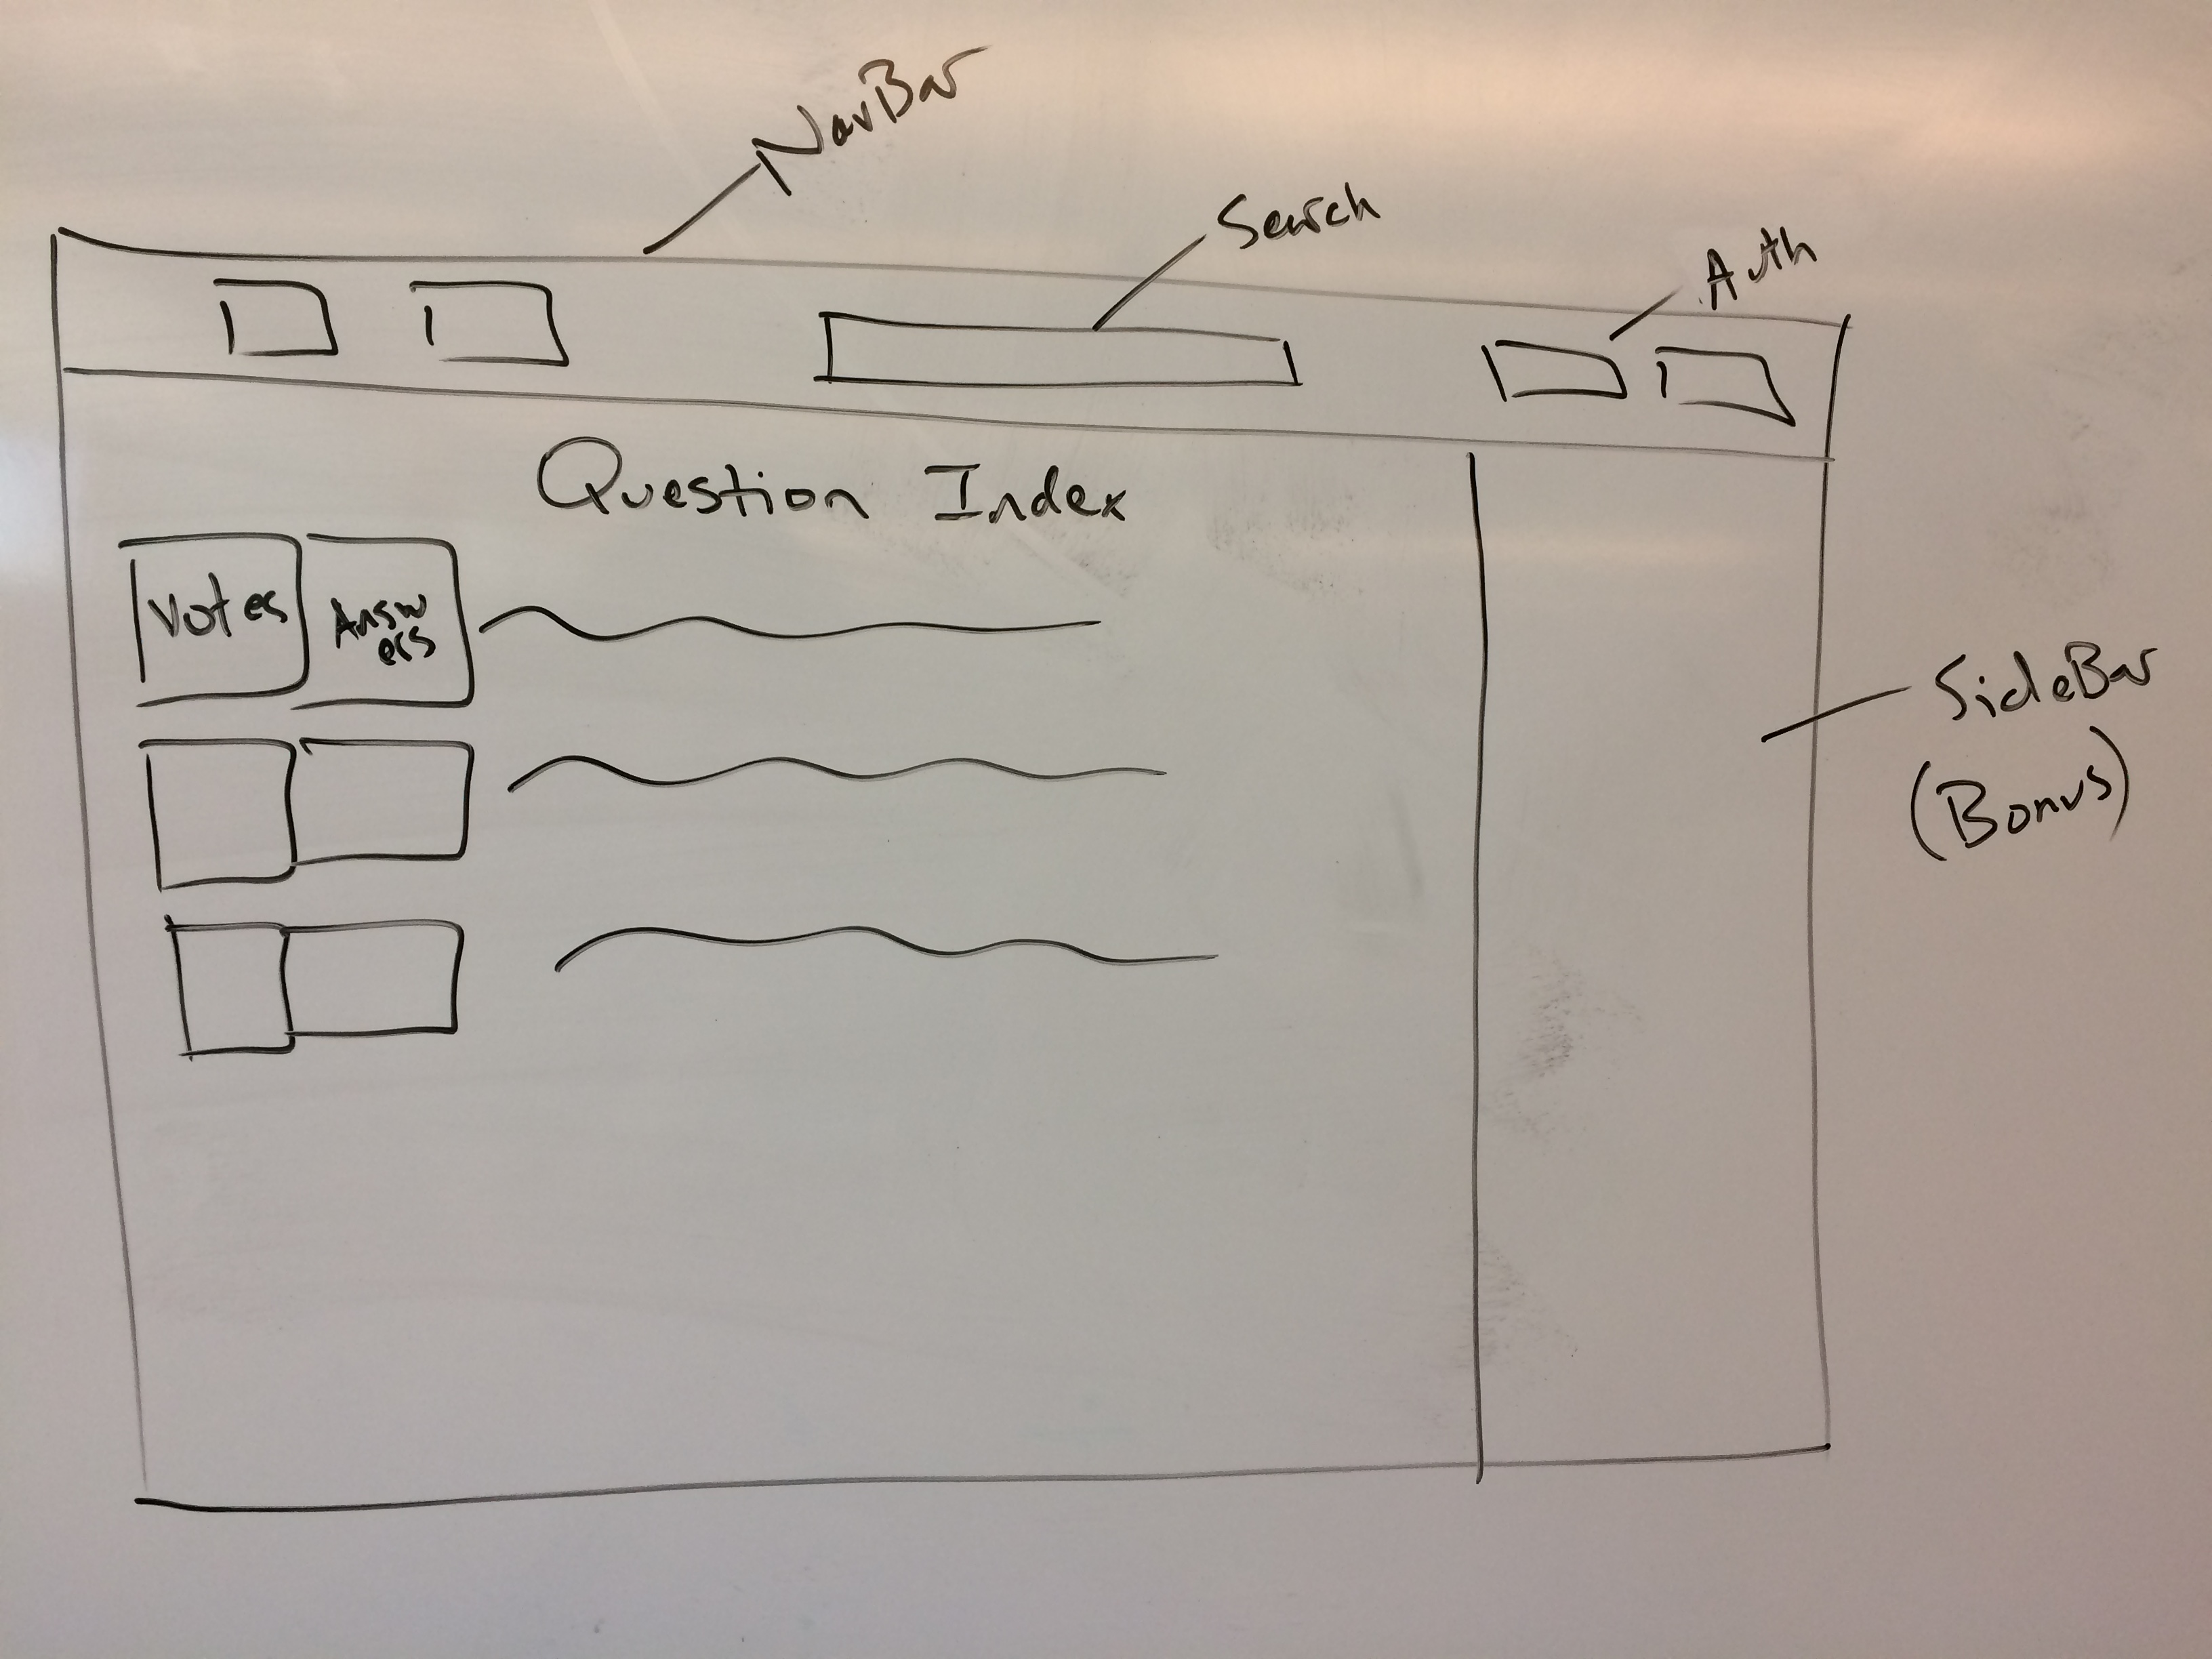 NavBar
Search
Auth
Question Index
Votes
Answ
ers
SideBar
(Bonus)